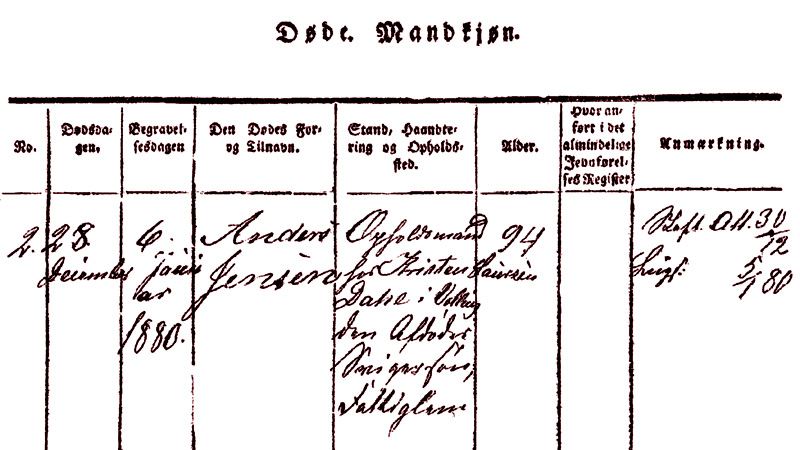 Døde. Mandkjøn.
No.
Dødsda-
gen.
Begravel-
sesdagen
Den Dødes For-
og Tilnavn.
Stand, Haandte-
ring og Opholds-
sted.
Alder.
Hvor an-
ført i det
almindelige
Jevnførel-
ses Register
Anmærkning.
2.
28
December
6.
Janu
ar
1880.
Anders
Jensen
Opholdsmand
hos Kristen Laursen
Dahl i
den Afdødes
Svigersøn,
Fattiglem
94
Skft. Att. 30/12
5/1 80